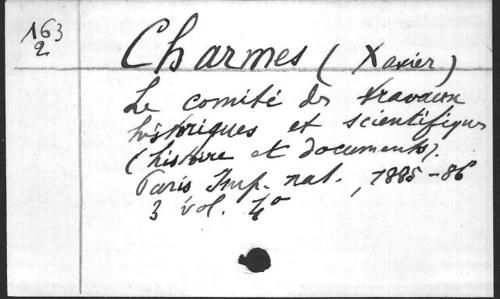 163
2
Charmes (Xavier)
Le comité des travaux
historiques et scientifiques
(histoire et documents).
Paris Imp. nat., 1885-86
3 vol. 4°